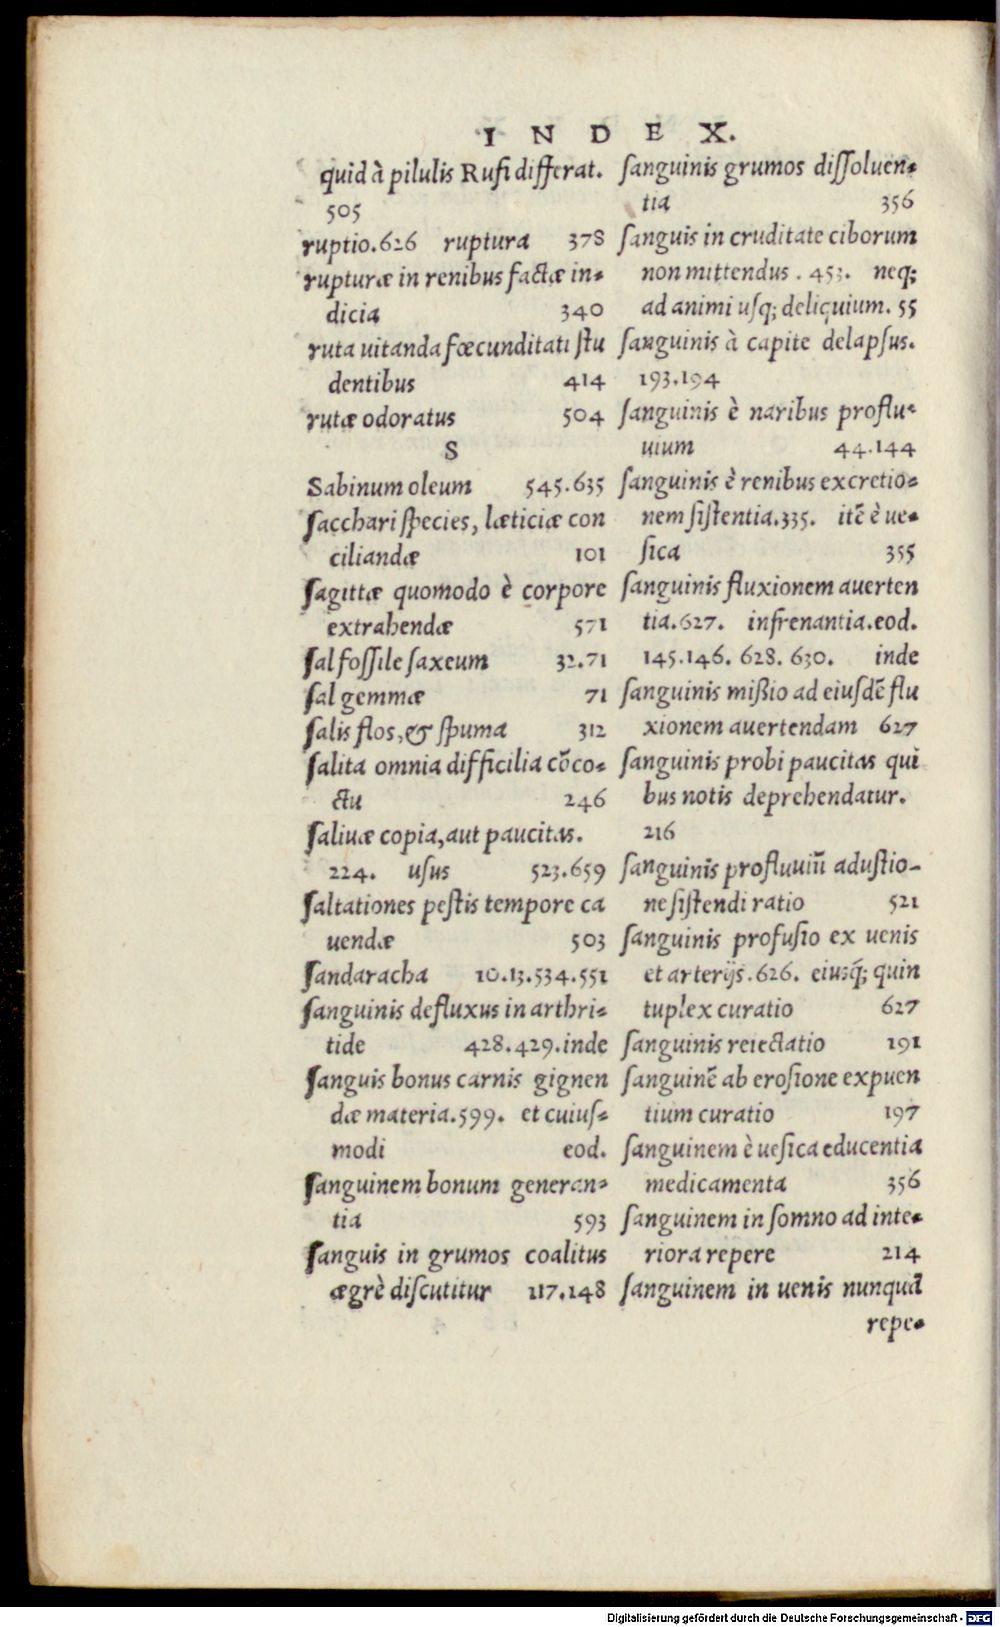 INDEX.
quid à pilulis Rufi differat.
505
ruptio.626 ruptura 378
rupturæ in renibus factæ in-
dicia 340
ruta uitanda fœcunditati ſtu
dentibus 414
rutæ odoratus 504
S
Sabinum oleum 545.635
ſacchari ſpecies, læticiæ con
ciliandæ 101
ſagittæ quomodo è corpore
extrahendæ 571
ſal foſſile ſaxeum 32.71
ſal gemmæ 71
ſalis flos, & ſpuma 312
ſalita omnia difficilia cõco-
ctu 246
ſaliuæ copia, aut paucitas.
224. uſus 523.659
ſaltationes peſtis tempore ca
uendæ 503
ſandaracha 10.13.534.551
ſanguinis defluxus in arthri-
tide 428.429.inde
ſanguis bonus carnis gignen
dæ materia.599. et cuiuſ-
modi eod.
ſanguinem bonum generan-
tia 593
ſanguis in grumos coalitus
ægrè diſcutitur 117.148
ſanguinis grumos diſſoluen-
tia 356
ſanguis in cruditate ciborum
non mittendus . 453. neq;
ad animi uſq; deliquium. 55
ſanguinis à capite delapſus.
193.194
ſanguinis è naribus proflu-
uium 44.144
ſanguinis è renibus excretio-
nem ſiſtentia.335. itẽ è ue-
ſica 355
ſanguinis fluxionem auerten
tia.627. infrenantia.eod.
145.146. 628. 630. inde
ſanguinis mißio ad eiuſdẽ flu
xionem auertendam 627
ſanguinis probi paucitas qui
bus notis deprehendatur.
216
ſanguinis profluuiũ aduſtio-
ne ſiſtendi ratio 521
ſanguinis profuſio ex uenis
et arterijs.626. eiusq́; quin
tuplex curatio 627
ſanguinis reiectatio 191
ſanguinẽ ab eroſione expuen
tium curatio 197
ſanguinem è ueſica educentia
medicamenta 356
ſanguinem in ſomno ad inte-
riora repere 214
ſanguinem in uenis nunquã
repe-
Digitalisierung gefördert durch die Deutsche Forschungsgemeinschaft - DFG